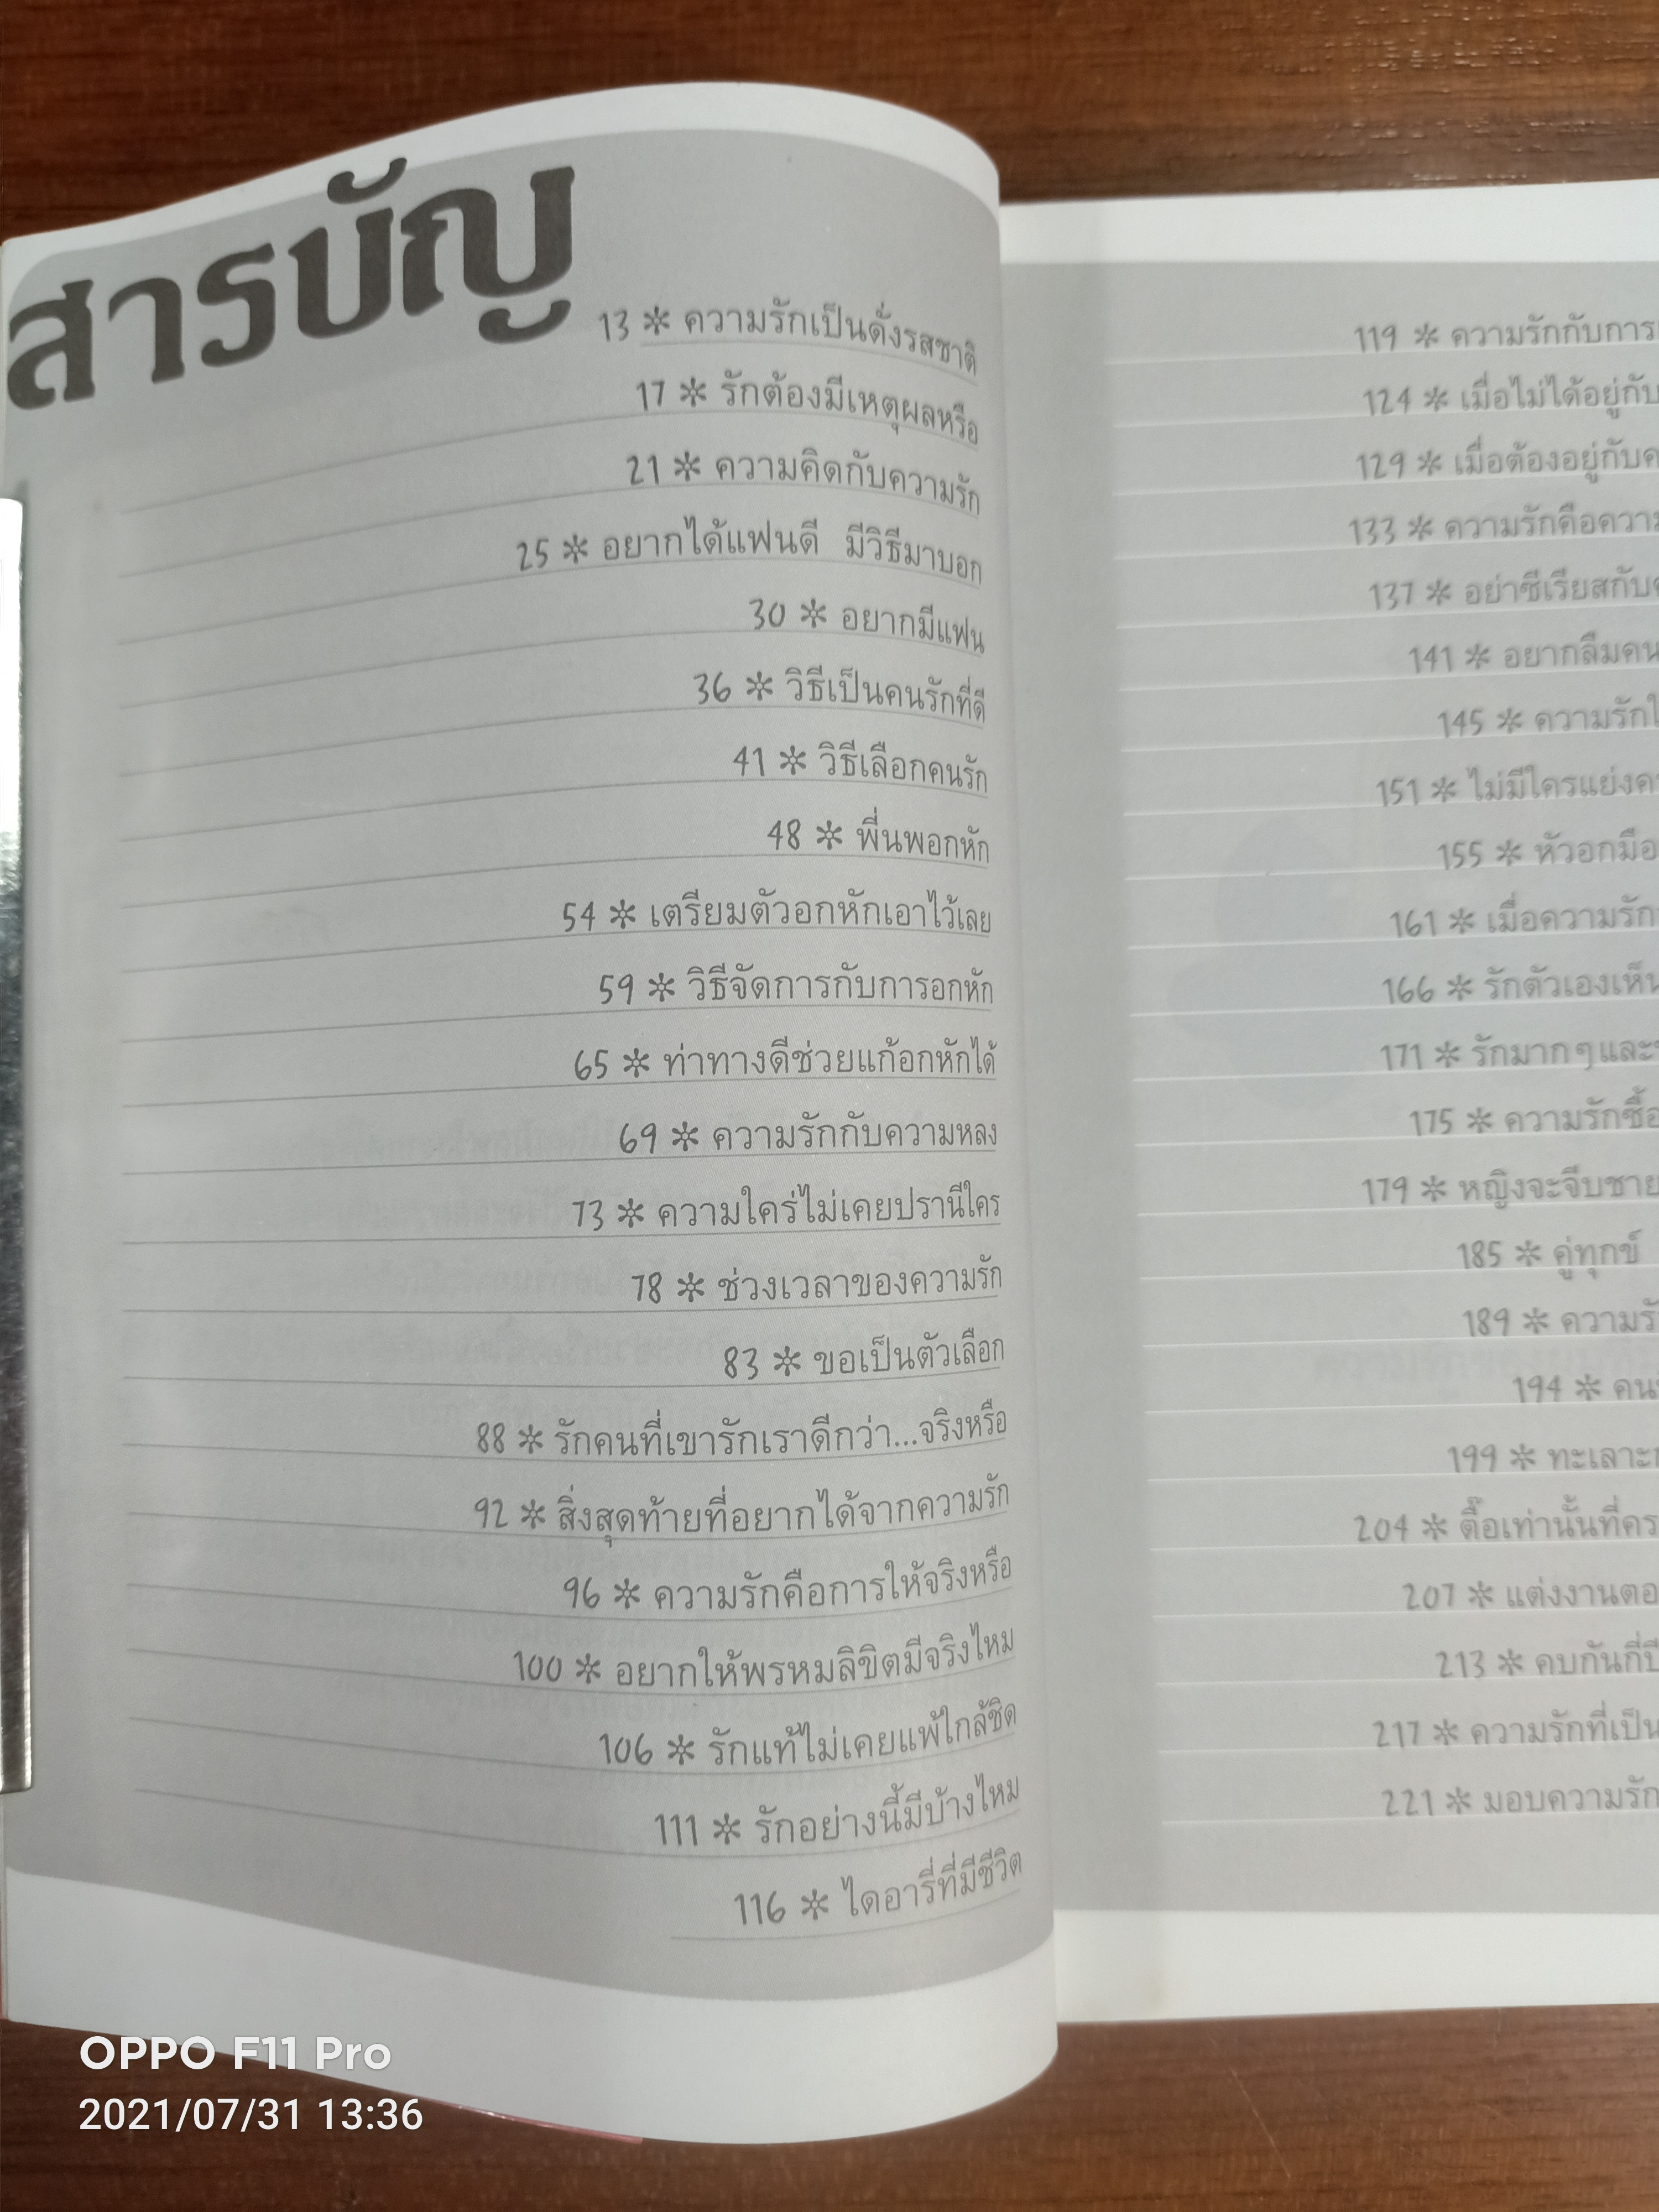 สารบัญ
13 * ความรักเป็นดั่งรสชาติ
17 * รักต้องมีเหตุผลหรือ
21 * ความคิดกับความรัก
25 * อยากได้แฟนดี มีวิธีมาบอก
30 * อยากมีแฟน
36 * วิธีเป็นคนรักที่ดี
41 * วิธีเลือกคนรัก
48 * พี่นพอกหัก
54 * เตรียมตัวอกหักเอาไว้เลย
59 * วิธีจัดการกับการอกหัก
65 * ท่าทางดีช่วยแก้อกหักได้
69 * ความรักกับความหลง
73 * ความใคร่ไม่เคยปรานีใคร
78 * ช่วงเวลาของความรัก
83 * ขอเป็นตัวเลือก
88 * รักคนที่เขารักเราดีกว่า...จริงหรือ
92 * สิ่งสุดท้ายที่อยากได้จากความรัก
96 * ความรักคือการให้จริงหรือ
100 * อยากให้พรหมลิขิตมีจริงไหม
106 * รักแท้ไม่เคยแพ้ใกล้ชิด
111 * รักอย่างนี้มีบ้างไหม
116 * ไดอารี่ที่มีชีวิต
119 * ความรักกับการ
124 * เมื่อไม่ได้อยู่กับ
129 * เมื่อต้องอยู่กับค
133 * ความรักคือความ
137 * อย่าซีเรียสกับ
141 * อยากลืมคน
145 * ความรักใ
151 * ไม่มีใครแย่งค
155 * หัวอกมือ
161 * เมื่อความรัก
166 * รักตัวเองเห็น
171 * รักมากๆและ
175 * ความรักซื้อ
179 * หญิงจะจีบชาย
185 * คู่ทุกข์
189 * ความรั
194 * คน
199 * ทะเลาะ
204 * ตื๊อเท่านั้นที่คร
207 * แต่งงานตอ
213 * คบกันกี่ปี
217 * ความรักที่เป็น
221 * มอบความรัก
OPPO F11 Pro
2021/07/31 13:36